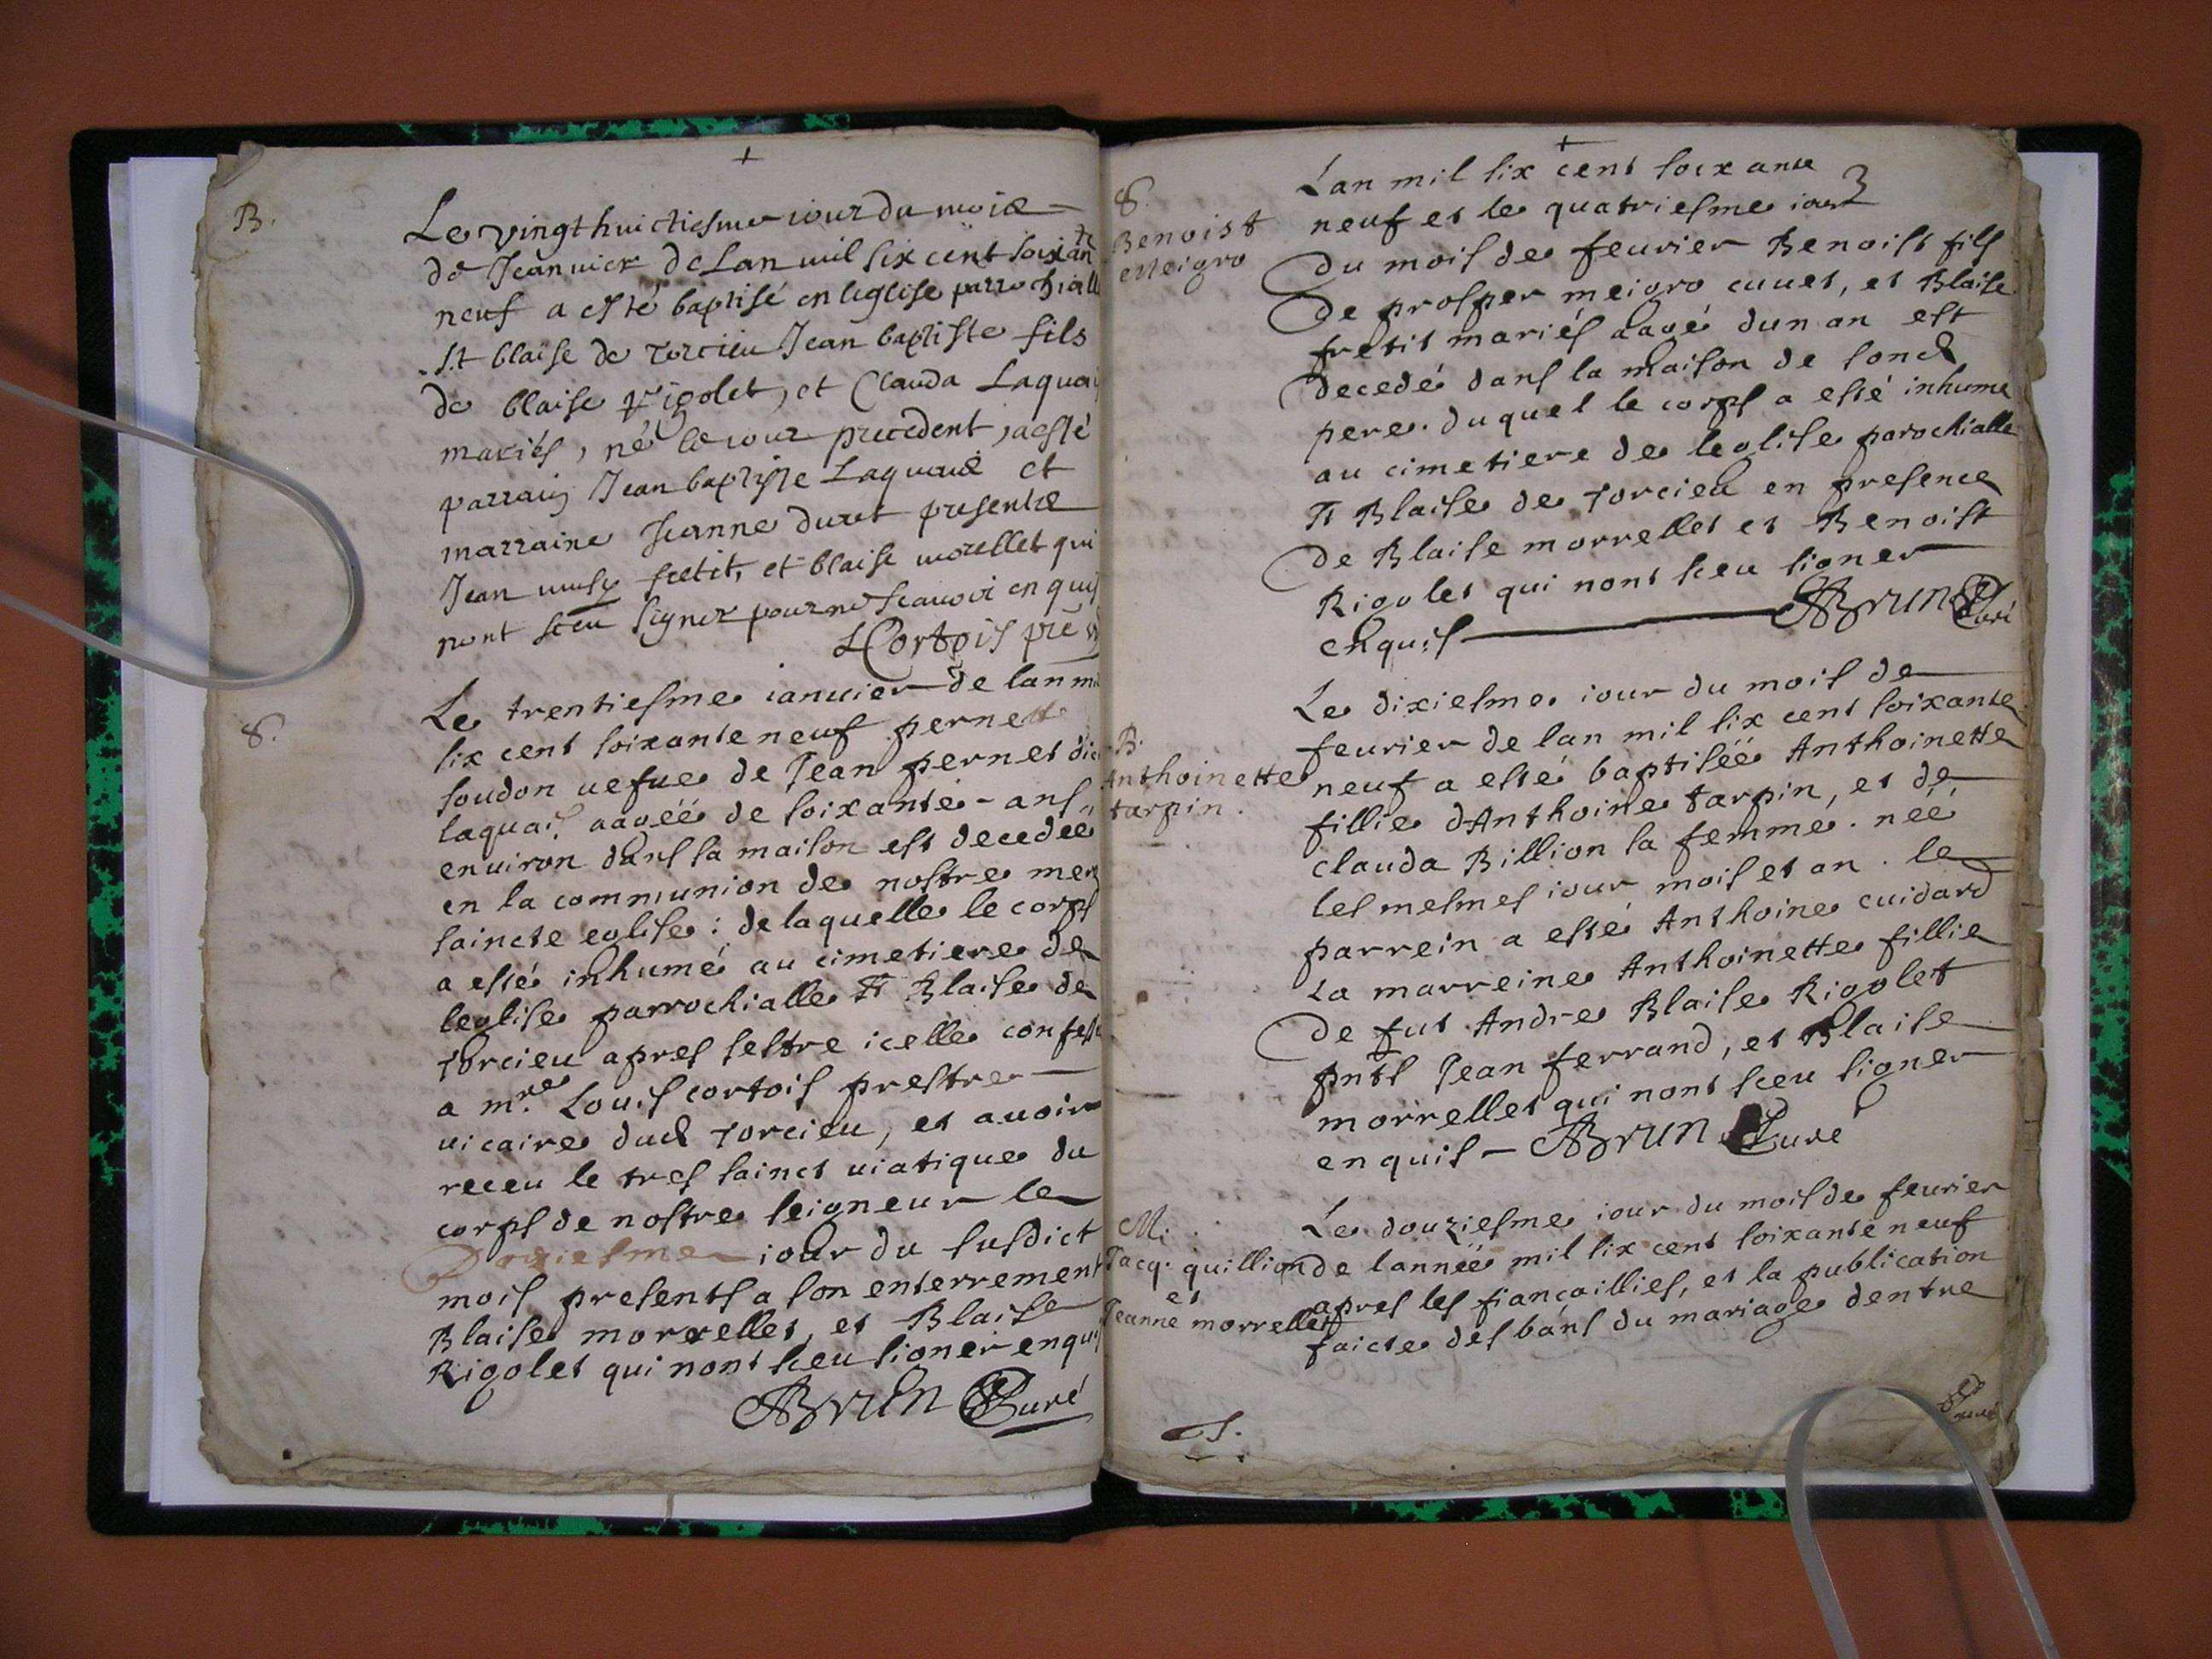 +
B.
Le vingt huictiesme iour du mois
de Jeanvier de Lan mil six cent soixante
neuf a esté baptisé en leglise parrochialle
St blaise de torcieu Jean baptiste fils
de blaise rigolet, et Clauda Laquais
mariés, né le iour precedent, a esté
parrain Jean baptiste Laquais et
marraine Jeanne duret presentz
Jean fretit, et blaise morellet qui
nont sceu signer pour ne scauoir enquis
LCortois pre
8.
Le trentiesme ianuier de lan mil
six cent soixante neuf pernette
soudon uefue de Jean pernet dict
laquais aagéé de soixante - ans
enuiron dans sa maison est decedeé
en la communion de nostre mere
saincte eglise: de laquelle le corps
a esté inhumé au cimetiere de
leglise parrochialle St Blaise de
torcieu apres sestre icelle confessé
a mre. Louis cortois prestre
uicaire dud torcieu, et auoir
receu le tres sainct uiatique du
corps de nostre seigneur le
iour du susdict
mois presents a son enterrement
Blaise morrellet, et Blaise
Rigolet qui nont sceu signer enquis
ABrun Curé
+
8.
Benoist
Meigro
Lan mil six cent soixante
neuf et le quatriesme iour
Du mois de feurier Benoist fils
De prosper meigro cuuet, et Blaise
fretit mariés aagé dun an est
Decedé dans la maison de sond
pere. duquel le corps a esté inhume
au cimetiere de leglise parochialle
St Blaise de torcieu en presence
De Blaise morrellet et Benoist
Rigolet qui nont sceu signer
enquis ABrun Curé
B.
Anthoinette
tarpin.
Le dixiesme iour du mois de
feurier de lan mil six cent soixante
neuf a esté baptiséé Anthoinette
fillie dAnthoine tarpin, et de
clauda Billion sa femme. néé
les mesmes iour mois et an. le
parrein a esté Anthoine cuidard
La marreine Anthoinette fillie
De fut Andre Blaise Rigolet
pnts Jean ferrand, et Blaise
morrellet qui nont sceu signer
enquis - ABrun Curé
M.
Jacq. quillion
et
Jeanne morrellet
Le douziesme iour du mois de feurier
de lannéé mil six cent soixante neuf
apres les fiancaillies, et la publication
faicte des bans du mariage dentre